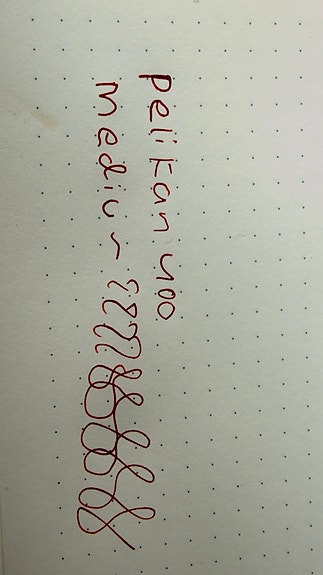 Pelikan 400
Medium